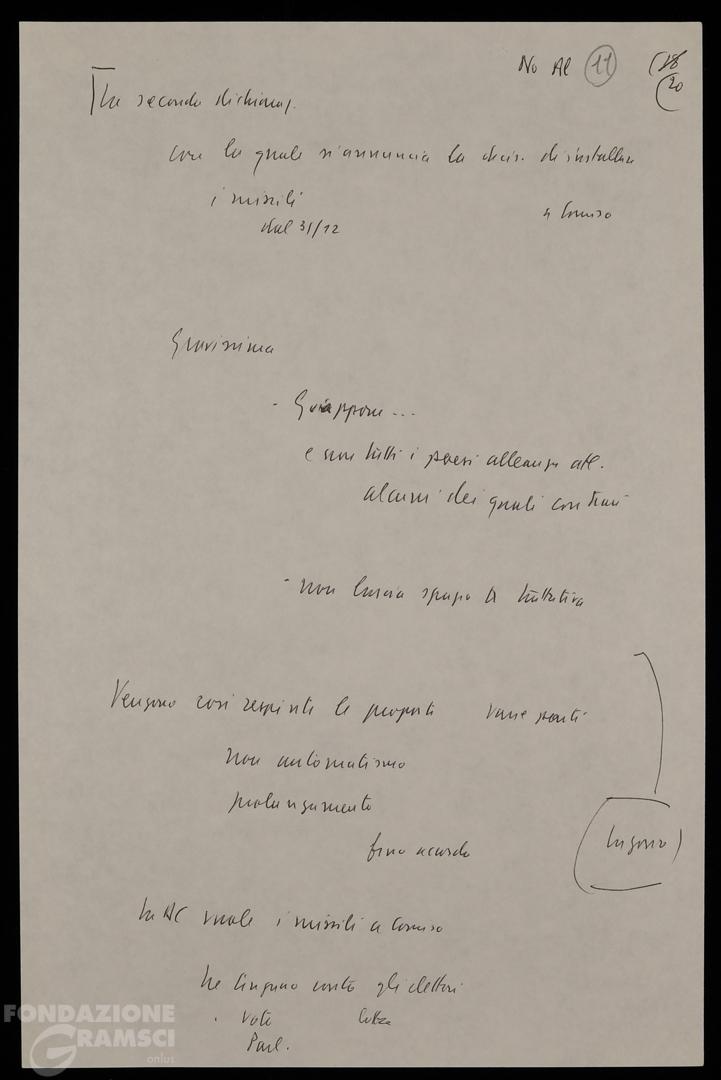 No Al 11 (18
(20
La seconda dichiaraz.
con la quale si annuncia la decis. di installare
i missili a Comiso
dal 31/12
Gravissima
- Giappone ...
e non tutti i paesi alleanza atl.
alcuni dei quali contrari
- non lascia spazio a trattativa
Vengono così respinte le proposte varie parti
non automatismo
prolungamento
fino accordo
La DC vuole i missili a Comiso
ne tengano conto gli elettori
. Voto lotta
Parl.
FONDAZIONE
GRAMSCI
onlus